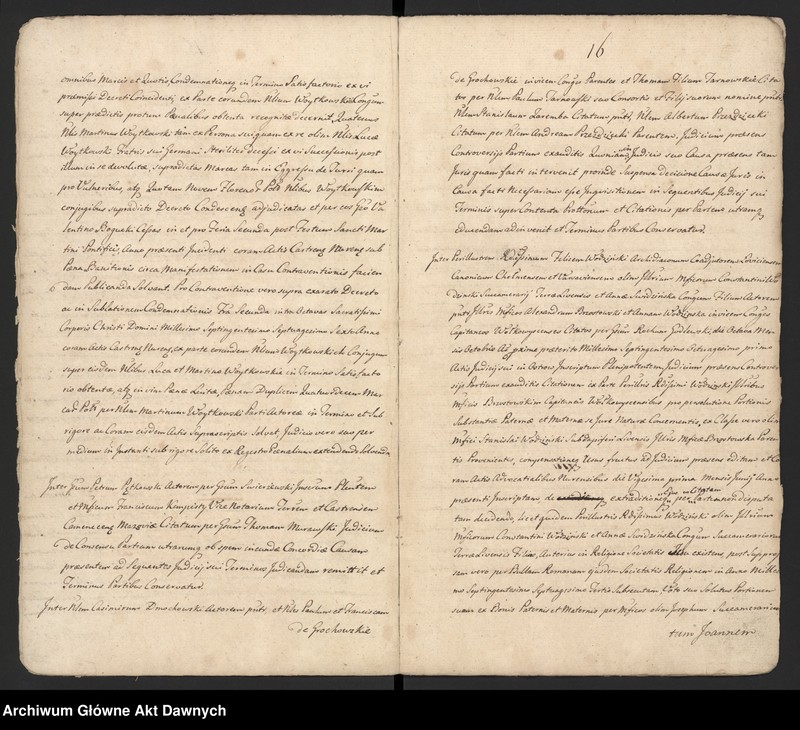 omnibus Marcis et Quotis Condemnationeq in Termino Satisfactorio ex vi
præmissi Decreti Coincidenti ex Parte eorundem Nlium Woytkowskie Conjgum
super prædictis protunc Pænalibus obtenta recognitæ decernit, Quatenus
Nlis Martinus Woytkowski tam ex Persona sui quam ex re olim Nlis Lucæ
Woytkowski Fratris sui Germani Sterilites Decessi ex vi Successionis post
illum in se devolutæ, Supradictas Marcas tam in Egressu de Turri quam
pro Vulneribus, atq Quotam Novem Florenor Pol Nlibus Woytkowskim
conjugibus supradicto Decreto Condescens adjudicatas et per eos Gso Va
lentino Bogucki Cessas in et pro Feria Secunda post Festum Sancti Mar
tini Pontificis, Anno præsenti Incidenti coram Actis Castren Nuren sub
Pæna Bannitionis circa Manifestationem in Casu Contraventionis facien
dam Publicanda Solvat. Pro Contraventione vero supra exarato Decreto
ac in Sublationem Condemnationis Fria Secunda intra Octavas Sacratissimi
Corporis Christi Domini Millesimo Septingentesimo Septuagesimo Sexto Anno
coram Actis Castren Nuren, ex parte eorundem Nlium Woytkowskich Conjugum
super eisdem Nlibus Luca et Martino Woytkowskie in Termino Satisfacto
rio obtentæ, atq in vim Pænæ Luitæ, Pænam Duplicem Quatuordecem Mar
car Pol per Nlem Martinum Woytkowski Parti Actoreæ in Termino et sub
rigore ac Coram eisdem Actis Suprascriptis Solvat Judicio vero suo per
medium in Instanti sub rigore solito ex Registro Pænalium extendendo Solvenda
Inter Gsum Petrum Pętkowski Actorem per Gsum Swierzewski Juserum Plentem
et Mficum Franciscum Kempisty Vice Notarium Terren et Castrensem
Camenecens Mazoviæ Citatum per Gsum Thomam Murawski Judicium
de Consensu Partium utrarumq ob spem ineundæ Concordiæ Causam
præsentem ad Sequentes Judicij sui Terminos Judicandam remittit et
Terminus Partibus Conservatur.
Inter Nlem Casimirum Dmochowski Actorem puts, et Nles Paulum et Franciscam
de Grochowskie
16
de Grochowskie invicem Conges Parentes et Thomam Filium Tarnowskie Cita
tos per Nlem Paulum Tarnowski suo Consortis et Filij suorum nomine, puts,
Nlem Stanislaum Zaremba Citatum puts, Nlem Albertum Przezdziecki
Citatum per Nlem Andream Przezdziecki Parentem, Judicium præsens
Controversijs Partium exauditis Quoniam in Judicio suo Causa præsens tam
Juris quam facti intervenit proinde Suspensa Decisione Causæ Juris in
Causa facti Necessarium esse Inquisitionem in Sequentibus Judicij sui
Terminis super Contenta Prottonum et Citationis per Partem utramq
educendam adinvenit et Terminus Partibus Conservatur.
Inter Perillustrem Rdissimum Felicem Wodzinski Archidiaconum Coadjutorem Lovicensem
Canonicum Chelmensem et Varsaviensem olim Illrium Mficorum Constantini Wo
dzinski Succamerarij Terræ Livensis et Annæ Swidzinska Congum Filium Actorem
puts Illres Mficos Alexandrum Brzostowski et Annam Wodzinska invicem Conges
Capitaneos Wołkowyscenses Citatos per Gsum Rochum Godlewski, die Octava Men
sis Octobris Ao proxime præterito Millesimo Septingentesimo Octuagesimo primo
Actis Judicij sui in Ostrow Inscriptum Plenipotentem Judicium præsens Controver
sijs Partium exauditis Citationem ex Parte Perillris Rdissimi Wodzinski Illribus
Mficis Brzostowskim Capitaneis Wołkowyscensibus pro persolutione Portionis
Substantiæ Paternæ et Maternæ se Jure Naturæ Concernentis, ex Classe vero olim
Mfici Stanislai Wodzinski Subdapiferi Livensis Illris Mficæ Brzostowska Paren
tis Provenientis, compensationeq Usus fructus ad Judicium præsens editam et Co
ram Actis Advocatialibus Nurensibus die Vigesima prima Mensis Junij Anno
præsenti Inscriptam, de extraditioneq ejus in Copiam per Partem non disputa
tam decidendo, licet quidem Perillustris Rdissimus Wodzinski olim Illrium
Mficorum Constantini Wodzinski et Annæ Swidzinska Congum Succamerariorum
Terræ Livensis Filius, Anterius in Religione Societatis Jesu existens, post Suppres
sam vero per Bullam Romanam ejusdem Societatis Religionem in Anno Millesi
mo Septingentesimo Septuagesimo Tertio Subsecutam Voto suo Solutus Portionem
suam ex Bonis Paternis et Maternis, per Mficos olim Josephum Succamerarium
tum Joannem
Archiwum Główne Akt Dawnych